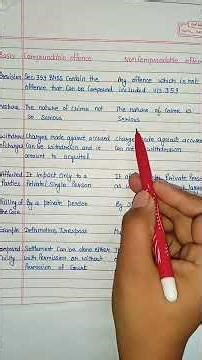 Basis Compoundable offence Noncompoundable offence
Provision Sec 359 BNSS Contain the Any offence which is not
offence that Can be Compound included u/s 359
Nature The nature of Crime not The nature of Crime is
so Serious Serious
Withdrawl Charges made against accused Charges made against accused
of charges Can be withdrawn and it Can not withdrawn
amount to acquittal
Affected It impact Only to a Private Person
Parties Private/ Single Person
Filing of By a private person By
the Case
Example Defamation, Trespass
Compound Settlement Can be done either
ability with Permission or without
Permission of Court